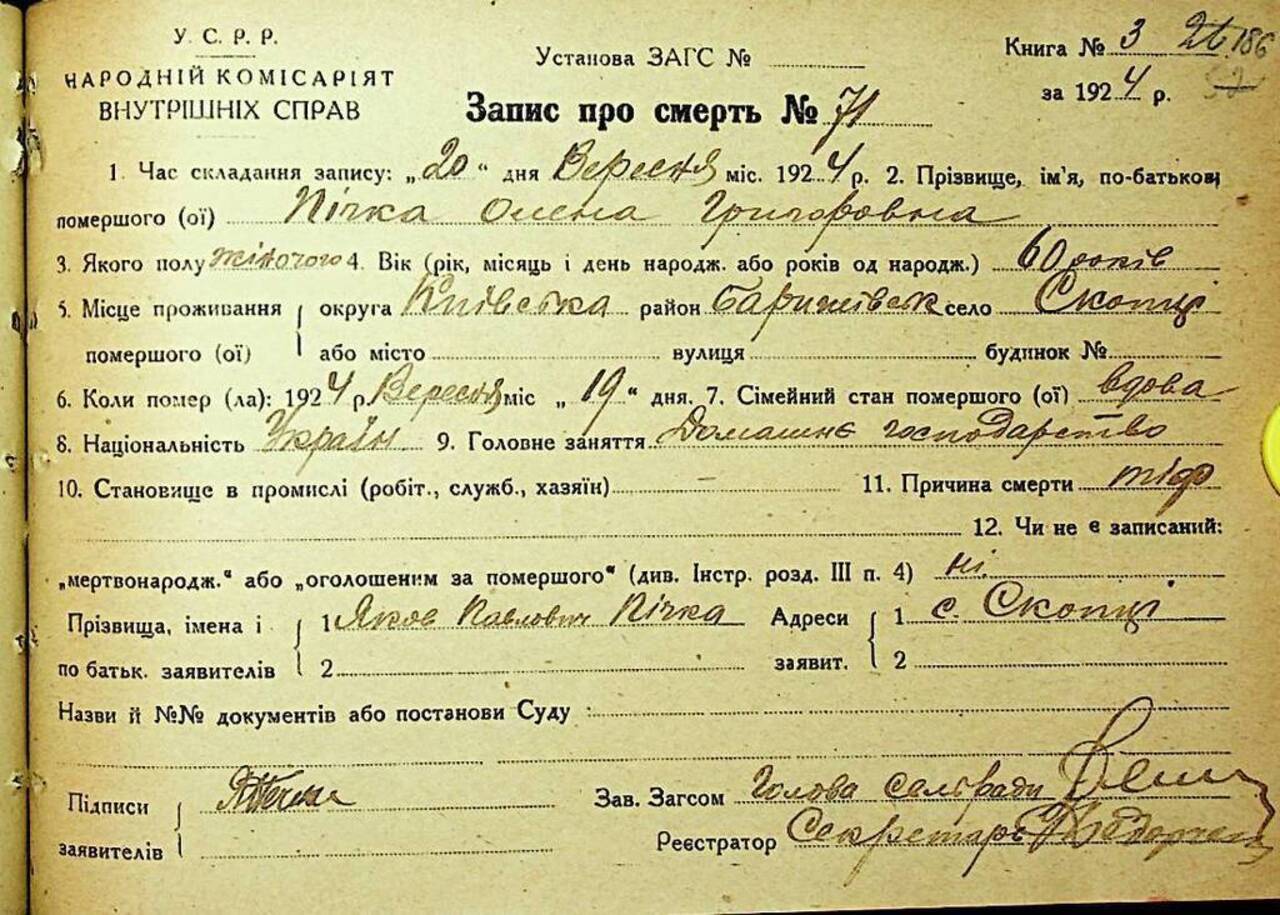 У. С. Р. Р.
НАРОДНІЙ КОМІСАРІЯТ
ВНУТРІШНІХ СПРАВ
Установа ЗАГС №
Книга № 3 26 186
за 1924 р. 52
Запис про смерть № 71
1. Час складання запису: „20“ дня Вересня міс. 1924 р. 2. Прізвище, ім'я, по-батькові
помершого (ої) Пічка Олена Григоровна
3. Якого полу жіночого 4. Вік (рік, місяць і день народж. або років од народж.) 60 років
5. Місце проживання округа Київська район Баришівськ село Скопці
помершого (ої) або місто вулиця будинок №
6. Коли помер (ла): 1924 р. Вересня міс „19“ дня. 7. Сімейний стан помершого (ої) вдова
8. Національність Україн 9. Головне заняття Домашнє господарство
10. Становище в промислі (робіт., служб., хазяїн) – 11. Причина смерти тіф
12. Чи не є записаний:
„мертвонародж.“ або „оголошеним за помершого“ (див. Інстр. розд. III п. 4) ні
Прізвища, імена і 1 Яков Павлович Пічка Адреси 1 с. Скопці
по батьк. заявителів 2 заявит. 2
Назви й №№ документів або постанови Суду :
Підписи Зав. Загсом Голова сельради
заявителів Реєстратор Секретарь